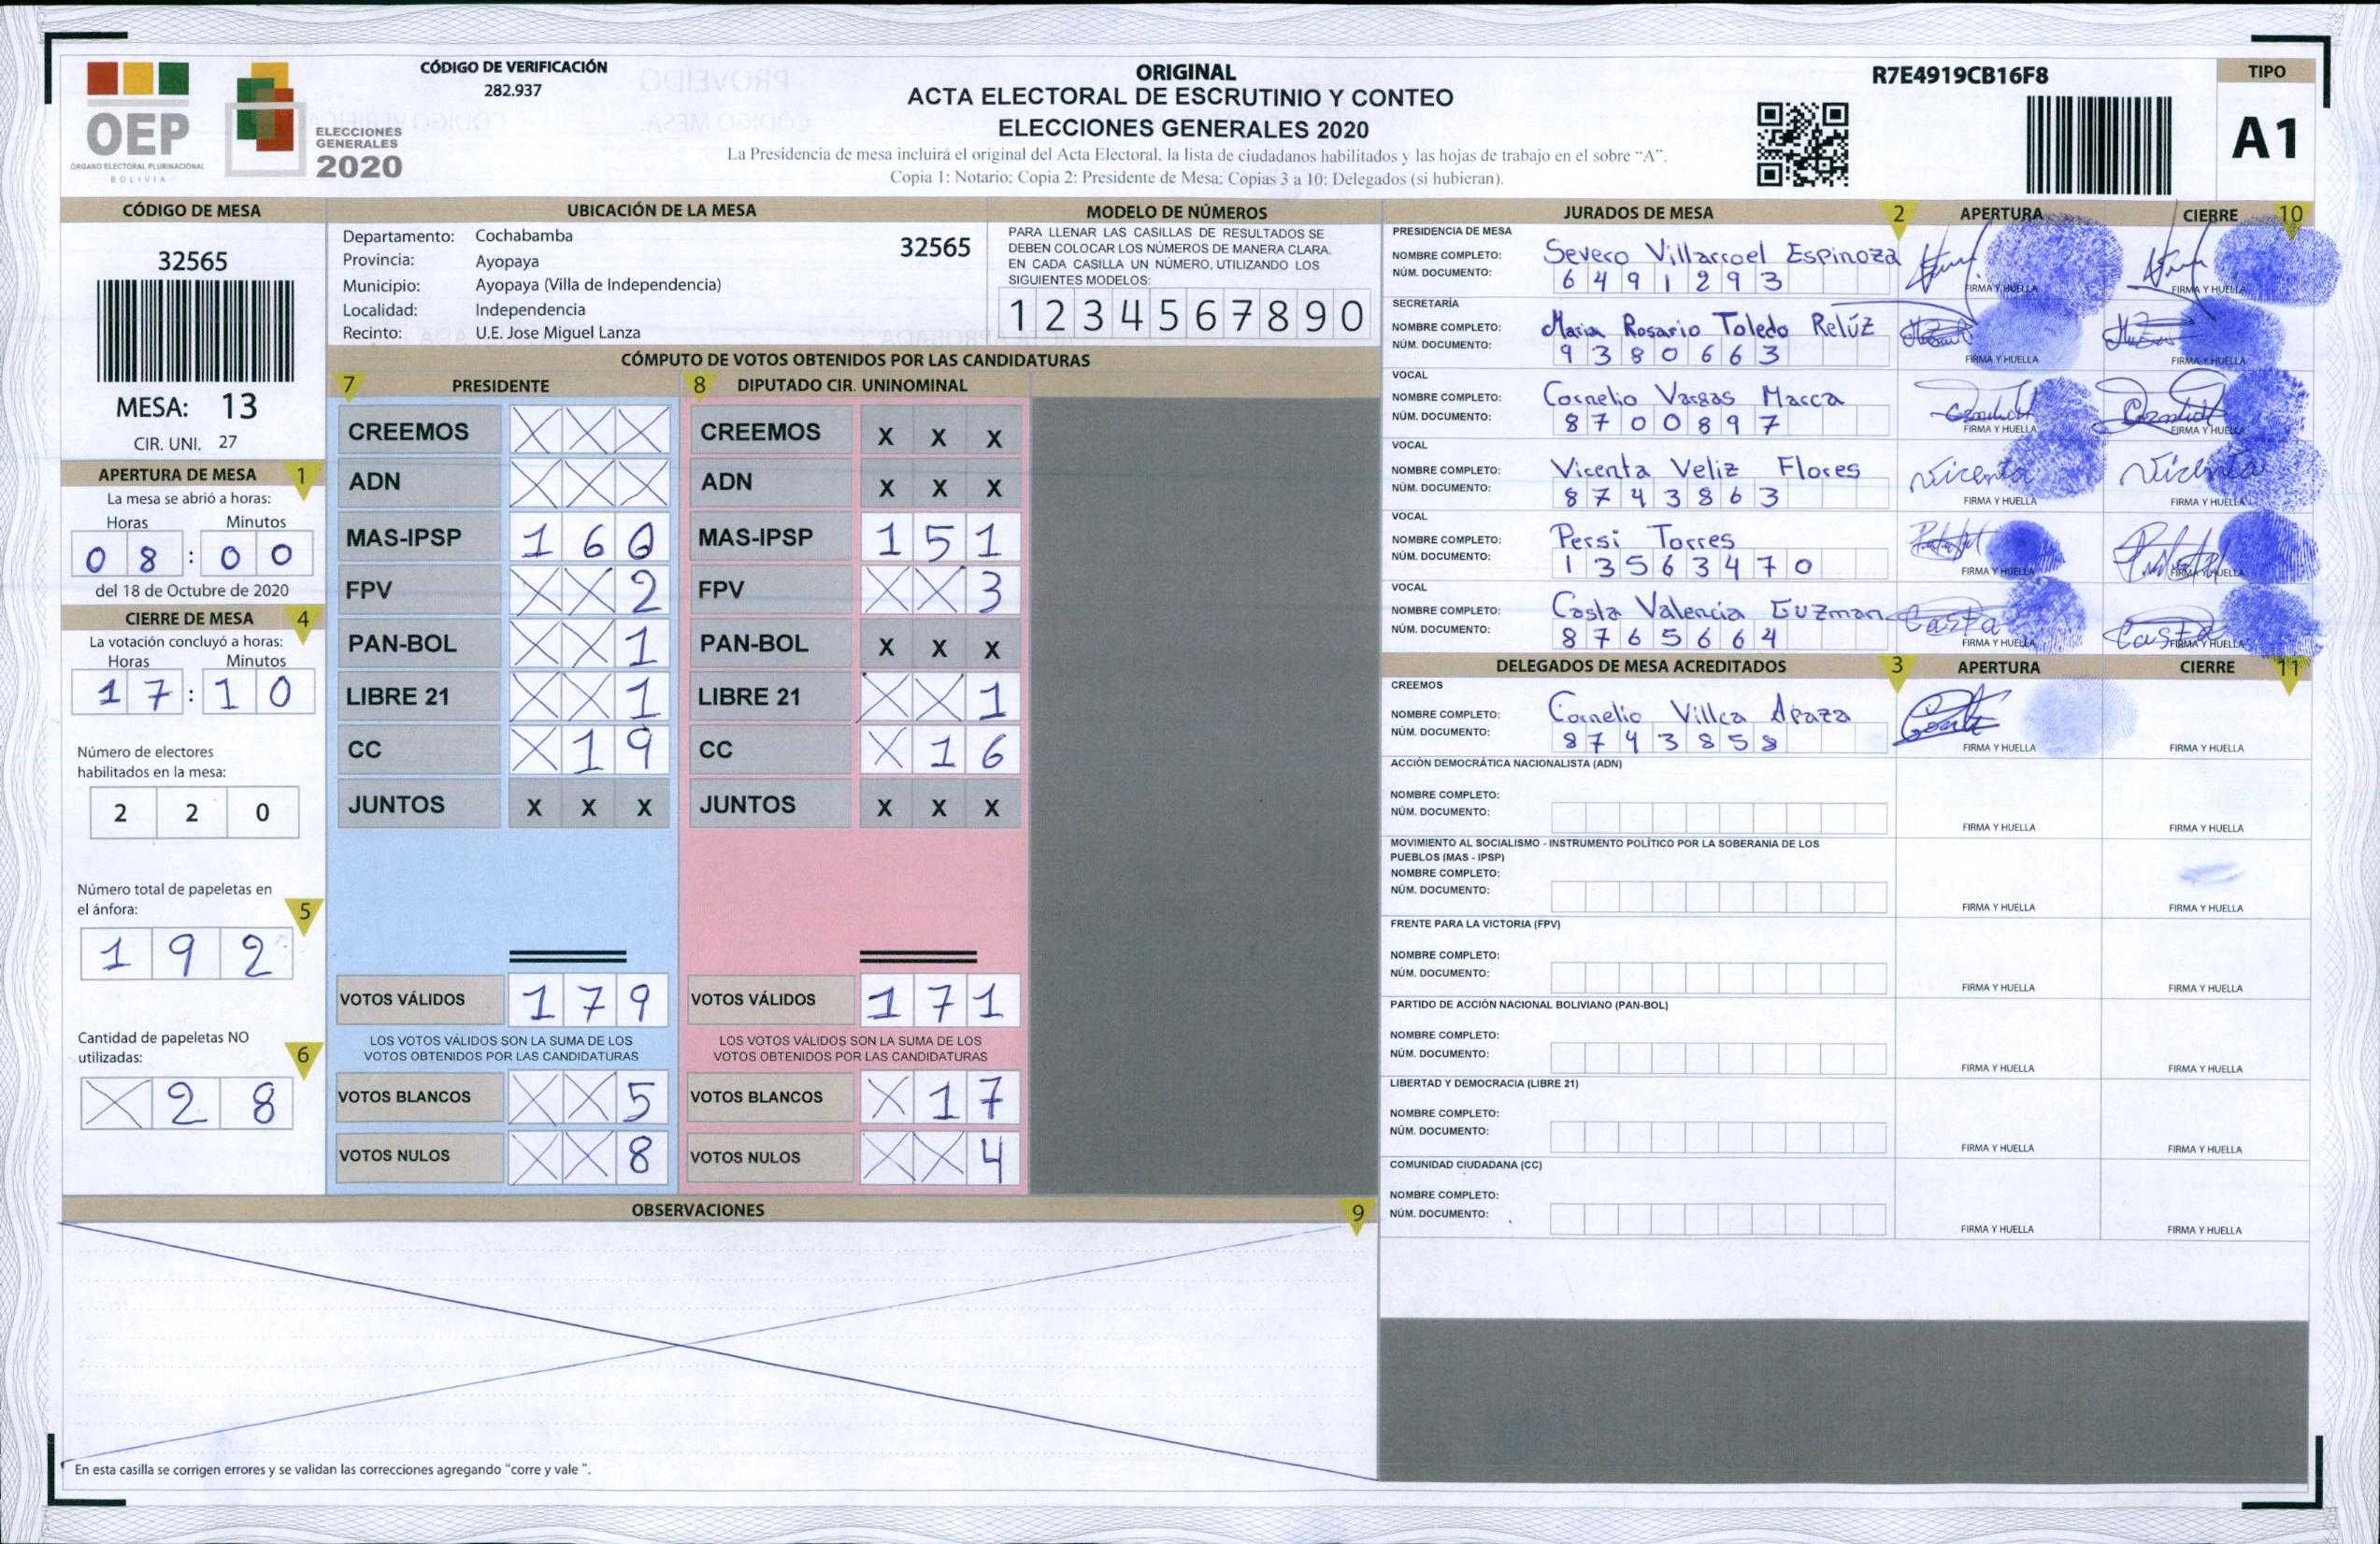 OEP
ÓRGANO ELECTORAL PLURINACIONAL
BOLIVIA
ELECCIONES
GENERALES
2020
CÓDIGO DE VERIFICACIÓN
282.937
ORIGINAL
ACTA ELECTORAL DE ESCRUTINIO Y CONTEO
ELECCIONES GENERALES 2020
La Presidencia de mesa incluirá el original del Acta Electoral, la lista de ciudadanos habilitados y las hojas de trabajo en el sobre "A".
Copia 1: Notario; Copia 2: Presidente de Mesa; Copias 3 a 10: Delegados (si hubieran).
R7E4919CB16F8
TIPO
A1
CÓDIGO DE MESA
32565
MESA: 13
CIR. UNI. 27
APERTURA DE MESA 1
La mesa se abrió a horas:
Horas Minutos
0 8 : 0 0
del 18 de Octubre de 2020
CIERRE DE MESA 4
La votación concluyó a horas:
Horas Minutos
1 7 : 1 0
Número de electores
habilitados en la mesa:
2 2 0
Número total de papeletas en
el ánfora: 5
1 9 2
Cantidad de papeletas NO
utilizadas: 6
X 2 8
UBICACIÓN DE LA MESA
Departamento: Cochabamba 32565
Provincia: Ayopaya
Municipio: Ayopaya (Villa de Independencia)
Localidad: Independencia
Recinto: U.E. Jose Miguel Lanza
MODELO DE NÚMEROS
PARA LLENAR LAS CASILLAS DE RESULTADOS SE
DEBEN COLOCAR LOS NÚMEROS DE MANERA CLARA.
EN CADA CASILLA UN NÚMERO, UTILIZANDO LOS
SIGUIENTES MODELOS:
1 2 3 4 5 6 7 8 9 0
CÓMPUTO DE VOTOS OBTENIDOS POR LAS CANDIDATURAS
7 PRESIDENTE
CREEMOS X X X
ADN X X X
MAS-IPSP 1 6 0
FPV X X 2
PAN-BOL X X 1
LIBRE 21 X X 1
CC X 1 9
JUNTOS X X X
VOTOS VÁLIDOS 1 7 9
LOS VOTOS VÁLIDOS SON LA SUMA DE LOS
VOTOS OBTENIDOS POR LAS CANDIDATURAS
VOTOS BLANCOS X X 5
VOTOS NULOS X X 8
8 DIPUTADO CIR. UNINOMINAL
CREEMOS X X X
ADN X X X
MAS-IPSP 1 5 1
FPV X X 3
PAN-BOL X X X
LIBRE 21 X X 1
CC X 1 6
JUNTOS X X X
VOTOS VÁLIDOS 1 7 1
LOS VOTOS VÁLIDOS SON LA SUMA DE LOS
VOTOS OBTENIDOS POR LAS CANDIDATURAS
VOTOS BLANCOS X 1 7
VOTOS NULOS X X 4
OBSERVACIONES 9
En esta casilla se corrigen errores y se validan las correcciones agregando "corre y vale ".
JURADOS DE MESA 2 APERTURA CIERRE 10
PRESIDENCIA DE MESA
NOMBRE COMPLETO: Severo Villarroel Espinoza
NÚM. DOCUMENTO: 6 4 9 1 2 9 3
FIRMA Y HUELLA FIRMA Y HUELLA
SECRETARÍA
NOMBRE COMPLETO: Maria Rosario Toledo Relúz
NÚM. DOCUMENTO: 9 3 8 0 6 6 3
FIRMA Y HUELLA FIRMA Y HUELLA
VOCAL
NOMBRE COMPLETO: Cornelio Vargas Marca
NÚM. DOCUMENTO: 8 7 0 0 8 9 7
FIRMA Y HUELLA FIRMA Y HUELLA
VOCAL
NOMBRE COMPLETO: Vicenta Veliz Flores Vicenta Vicenta
NÚM. DOCUMENTO: 8 7 4 3 8 6 3
FIRMA Y HUELLA FIRMA Y HUELLA
VOCAL
NOMBRE COMPLETO: Persi Torres
NÚM. DOCUMENTO: 1 3 5 6 3 4 7 0
FIRMA Y HUELLA FIRMA Y HUELLA
VOCAL
NOMBRE COMPLETO: Casta Valencia Guzman Casta Casta
NÚM. DOCUMENTO: 8 7 6 5 6 6 4
FIRMA Y HUELLA FIRMA Y HUELLA
DELEGADOS DE MESA ACREDITADOS 3 APERTURA CIERRE 11
CREEMOS
NOMBRE COMPLETO: Cornelio Villca Apaza
NÚM. DOCUMENTO: 8 7 4 3 8 5 8
FIRMA Y HUELLA FIRMA Y HUELLA
ACCIÓN DEMOCRÁTICA NACIONALISTA (ADN)
NOMBRE COMPLETO:
NÚM. DOCUMENTO:
FIRMA Y HUELLA FIRMA Y HUELLA
MOVIMIENTO AL SOCIALISMO - INSTRUMENTO POLÍTICO POR LA SOBERANIA DE LOS
PUEBLOS (MAS - IPSP)
NOMBRE COMPLETO:
NÚM. DOCUMENTO:
FIRMA Y HUELLA FIRMA Y HUELLA
FRENTE PARA LA VICTORIA (FPV)
NOMBRE COMPLETO:
NÚM. DOCUMENTO:
FIRMA Y HUELLA FIRMA Y HUELLA
PARTIDO DE ACCIÓN NACIONAL BOLIVIANO (PAN-BOL)
NOMBRE COMPLETO:
NÚM. DOCUMENTO:
FIRMA Y HUELLA FIRMA Y HUELLA
LIBERTAD Y DEMOCRACIA (LIBRE 21)
NOMBRE COMPLETO:
NÚM. DOCUMENTO:
FIRMA Y HUELLA FIRMA Y HUELLA
COMUNIDAD CIUDADANA (CC)
NOMBRE COMPLETO:
NÚM. DOCUMENTO:
FIRMA Y HUELLA FIRMA Y HUELLA